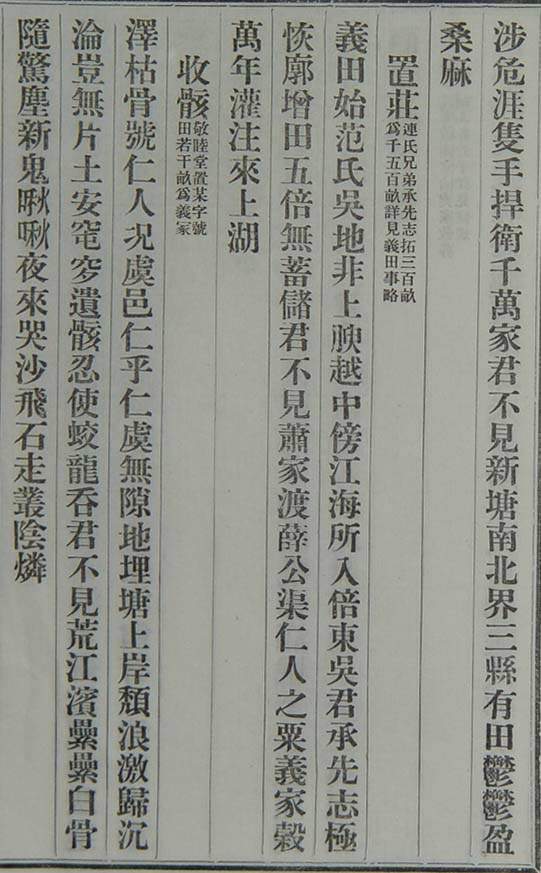 涉危涯隻手捍衛千萬家君不見新塘南北界三縣有田鬱鬱盈
桑麻
置莊
連氏兄弟承先志拓三百畝
為千五百畝詳見義田事略
義田始范氏吳地非上腴越中傍江海所入倍東吳君承先志極
恢廓增田五倍無蓄儲君不見蕭家渡薛公渠仁人之粟義家穀
萬年灌注來上湖
收骸
敬睦堂置某字號
田若干畝爲義冢
澤枯骨號仁人况虞邑仁乎仁虞無隙地埋塘上岸頹浪激歸沉
淪豈無片土安窀穸遺骸忍使蛟龍吞君不見荒江濱纍纍白骨
隨驚塵新鬼啾啾夜來哭沙飛石走叢陰燐